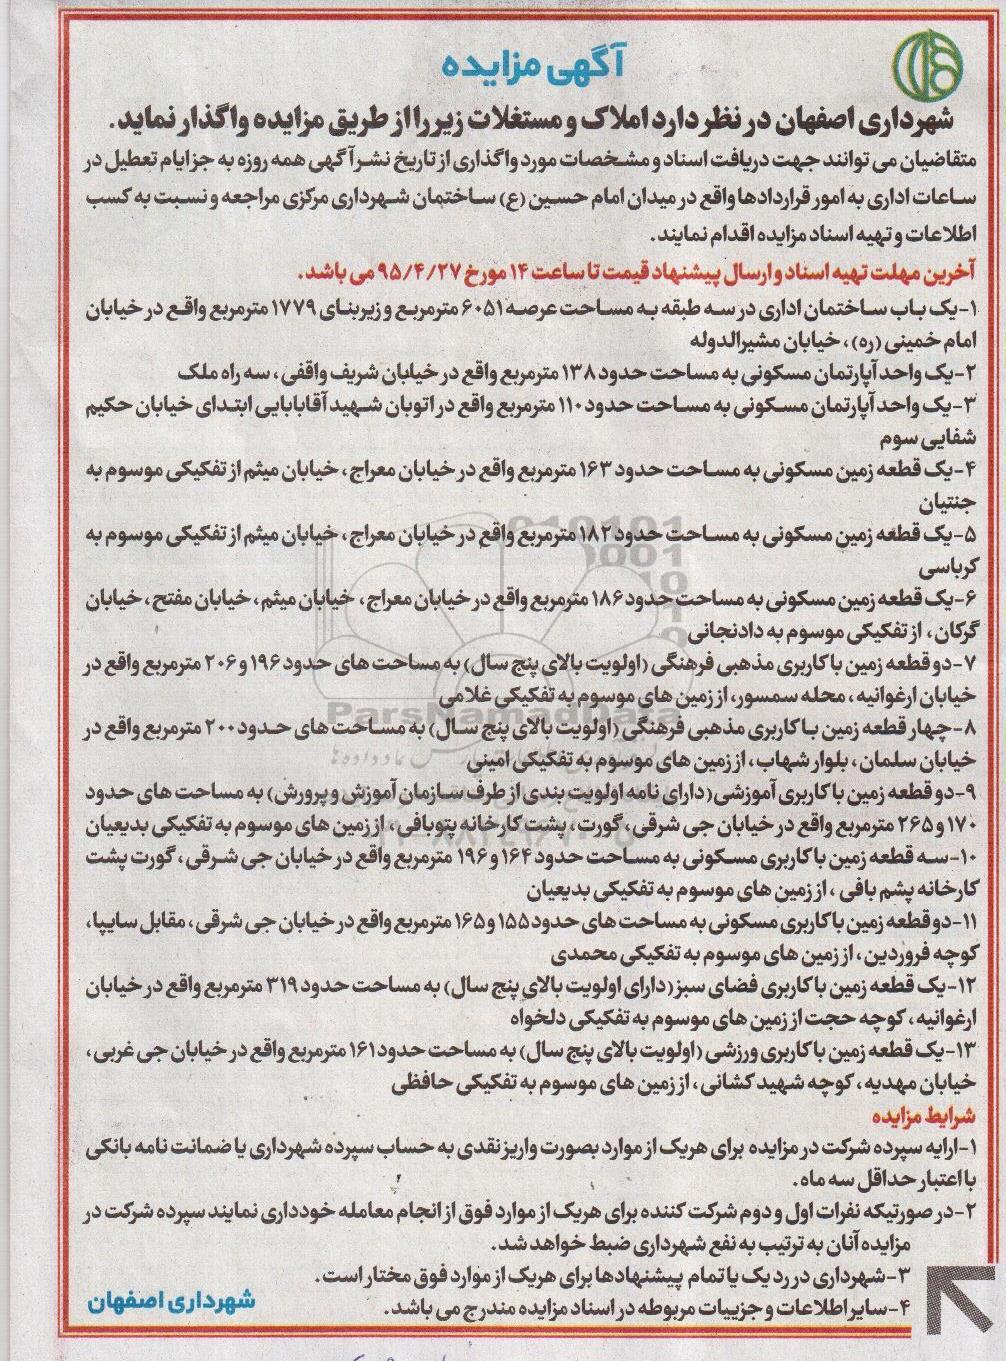 آگهی مزایده
شهرداری اصفهان در نظر دارد املاک و مستغلات زیر را از طریق مزایده واگذار نماید.
متقاضیان می توانند جهت دریافت اسناد و مشخصات مورد واگذاری از تاریخ نشر آگهی همه روزه به جز ایام تعطیل در
ساعات اداری به امور قراردادها واقع در میدان امام حسین (ع) ساختمان شهرداری مرکزی مراجعه و نسبت به کسب
اطلاعات و تهیه اسناد مزایده اقدام نمایند.
آخرین مهلت تهیه اسناد و ارسال پیشنهاد قیمت تا ساعت ۱۴ مورخ ۹۵/۴/۲۷ می باشد.
۱-یک باب ساختمان اداری در سه طبقه به مساحت عرصه ۶۰۵۱ مترمربع و زیربنای ۱۷۷۹ مترمربع واقع در خیابان
امام خمینی (ره)، خیابان مشیرالدوله
۲-یک واحد آپارتمان مسکونی به مساحت حدود ۱۳۸ مترمربع واقع در خیابان شریف واقفی، سه راه ملک
۳-یک واحد آپارتمان مسکونی به مساحت حدود ۱۱۰ مترمربع واقع در اتوبان شهید آقابابایی ابتدای خیابان حکیم
شفایی سوم
۴-یک قطعه زمین مسکونی به مساحت حدود ۱۶۳ مترمربع واقع در خیابان معراج، خیابان میثم از تفکیکی موسوم به
جنتیان
۵-یک قطعه زمین مسکونی به مساحت حدود ۱۸۲ مترمربع واقع در خیابان معراج، خیابان میثم از تفکیکی موسوم به
کرباسی
۶-یک قطعه زمین مسکونی به مساحت حدود ۱۸۶ مترمربع واقع در خیابان معراج، خیابان میثم، خیابان مفتح، خیابان
گرکان، از تفکیکی موسوم به دادنجانی
۷-دو قطعه زمین با کاربری مذهبی فرهنگی (اولویت بالای پنج سال) به مساحت های حدود ۱۹۶ و ۲۰۶ مترمربع واقع در
خیابان ارغوانیه، محله سمسور، از زمین های موسوم به تفکیکی غلامی
۸-چهار قطعه زمین با کاربری مذهبی فرهنگی (اولویت بالای پنج سال) به مساحت های حدود ۲۰۰ مترمربع واقع در
خیابان سلمان، بلوار شهاب، از زمین های موسوم به تفکیکی امینی
۹-دو قطعه زمین با کاربری آموزشی (دارای نامه اولویت بندی از طرف سازمان آموزش و پرورش) به مساحت های حدود
۱۷۰ و ۲۶۵ مترمربع واقع در خیابان جی شرقی، گورت، پشت کارخانه پتوبافی، از زمین های موسوم به تفکیکی بدیعیان
۱۰-سه قطعه زمین با کاربری مسکونی به مساحت حدود ۱۶۴ و ۱۹۶ مترمربع واقع در خیابان جی شرقی، گورت پشت
کارخانه پشم بافی، از زمین های موسوم به تفکیکی بدیعیان
۱۱-دو قطعه زمین با کاربری مسکونی به مساحت های حدود ۱۵۵ و ۱۶۵ مترمربع واقع در خیابان جی شرقی، مقابل سایپا،
کوچه فروردین، از زمین های موسوم به تفکیکی محمدی
۱۲-یک قطعه زمین با کاربری فضای سبز (دارای اولویت بالای پنج سال) به مساحت حدود ۳۱۹ مترمربع واقع در خیابان
ارغوانیه، کوچه حجت از زمین های موسوم به تفکیکی دلخواه
۱۳-یک قطعه زمین با کاربری ورزشی (اولویت بالای پنج سال) به مساحت حدود ۱۶۱ مترمربع واقع در خیابان جی غربی،
خیابان مهدیه، کوچه شهید کشانی، از زمین های موسوم به تفکیکی حافظی
شرایط مزایده
۱-ارایه سپرده شرکت در مزایده برای هریک از موارد بصورت واریز نقدی به حساب سپرده شهرداری یا ضمانت نامه بانکی
با اعتبار حداقل سه ماه.
۲-در صورتیکه نفرات اول و دوم شرکت کننده برای هریک از موارد فوق از انجام معامله خودداری نمایند سپرده شرکت در
مزایده آنان به ترتیب به نفع شهرداری ضبط خواهد شد.
۳-شهرداری در رد یک یا تمام پیشنهادها برای هریک از موارد فوق مختار است.
۴-سایر اطلاعات و جزییات مربوطه در اسناد مزایده مندرج می باشد.
شهرداری اصفهان
ParsNamadData